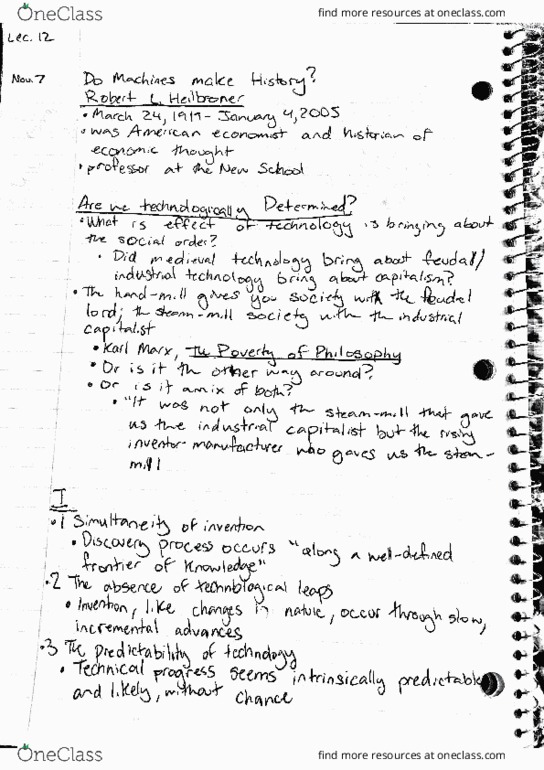 OneClass find more resources at oneclass.com
Lec. 12
Nov. 7 Do Machines make History?
Robert L. Heilbroner
• March 24, 1919- January 4, 2005
• was American economist and historian of
economic thought
• professor at the New School
Are we technologically Determined?
• What is effect of technology is bringing about
the social order?
• Did medieval technology bring about feudal/
industrial technology bring about capitalism?
• The hand-mill gives you society with the feudal
lord; the steam-mill society with the industrial
capitalist
• Karl Marx, The Poverty of Philosophy
• Or is it the other way around?
• Or is it a mix of both?
• "It was not only the steam-mill that gave
us the industrial capitalist but the rising
inventor-manufacturer who gaves us the steam-
mill
I
• 1 Simultaneity of invention
• Discovery process occurs "along a well-defined
frontier of knowledge"
• 2 The absence of technological leaps
• Invention, like changes in nature, occur through slow,
incremental advances
• 3 The predictability of technology
• Technical progress seems intrinsically predictable
and likely, without chance
OneClass find more resources at oneclass.com